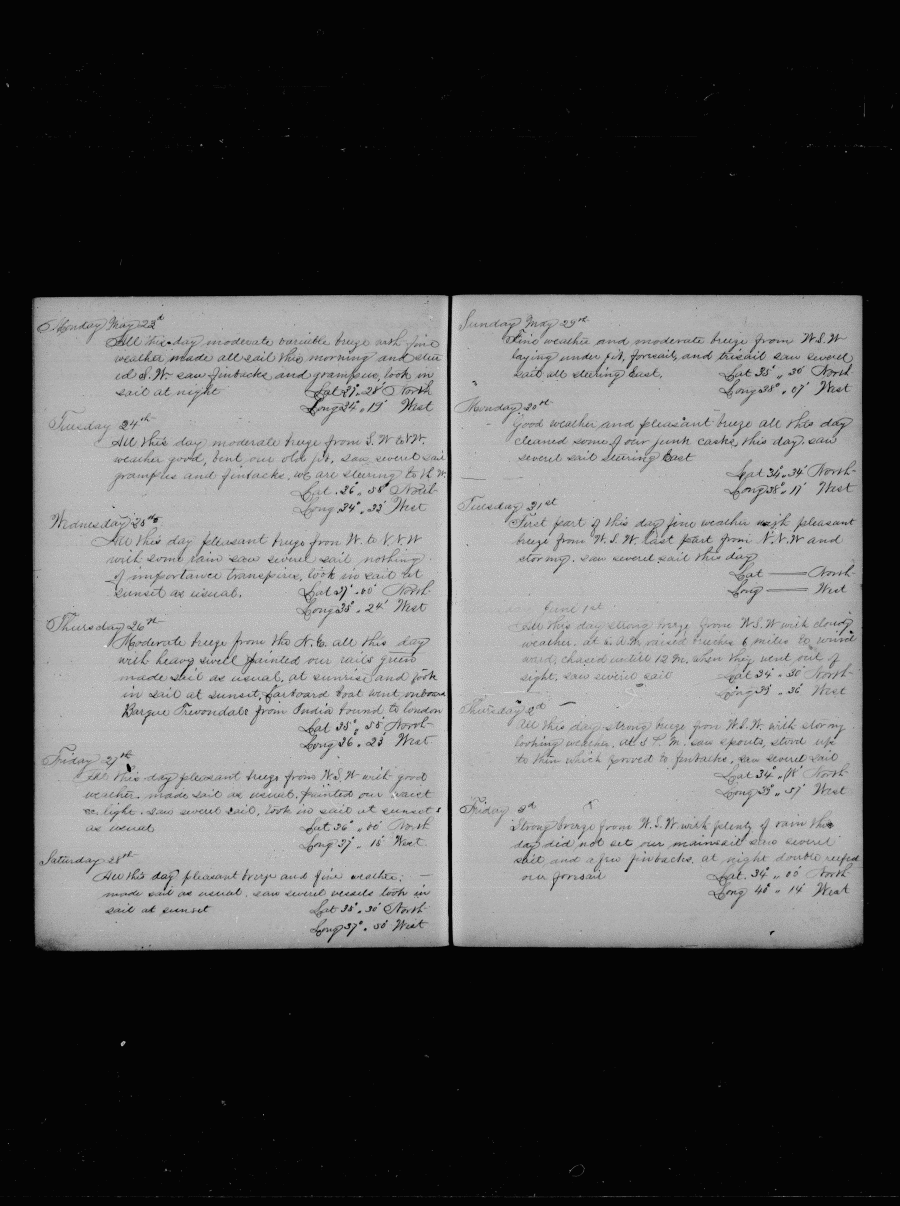 Monday May 23d
All this day moderate variable breeze with fine
weather made all sail this morning and steer
ed S.W. saw finbacks and grampus, took in
sail at night Lat 37° " 28' North
Long 34° " 19' West
Tuesday 24th
All this day moderate breeze from S.W. to N.W.
weather good, bent our old jib, saw severel sail
grampus and finbacks, we are steering to th W.
Lat 36° " 58' North
Long 34° " 32' West
Wednesday 25th
All this day pleasant breeze from W. to N.N.W
with some rain saw severel sail nothing
of importance transpires, took in sail at
sunset as usual. Lat 37° " 00' North
Long 35° " 24' West
Thursday 26th
Moderate breeze from the N.E. all this day
with heavy swell painted our rails green
made sail as usual, at sunrise and took
in sail at sunset, Larboard boat went onboard
Barque Trevondals from India bound to london
Lat 35° " 58' North
Long 36 " 23' West
Friday 27th
All this day pleasant breeze from W.S.W with good
weather. made sail as usual, painted our
light. saw severel sail, took in sail at sunset
as usual Lat 36° " 00' North
Long 37° " 16' West
Saturday 28th
All this day pleasant breeze and fine weather;
made sail as usual. saw severel vessels took in
sail at sunset Lat 35° " 30' North
Long 37° " 50' West
Sunday May 29th
Fine weather and moderate breeze from W.S.W
laying under jib, forsail, and trisail saw severel
sail all steering East. Lat 35° " 30' North
Long 38° " 07' West
Monday 30th
Good weather and pleasant breeze all this day
cleaned some of our junk casks, this day. saw
severel sail steering East
Lat 34° " 34' North
Long 38° " 17' West
Tuesday 31st
First part of this day fine weather with pleasant
breeze from W.S.W. last part from N.N.W and
stormy. saw severel sail this day
Lat —— North
Long —— West
June 1st
All this day strong breeze from W.S.W with
weather. at A.M. raised breeches 6 miles to wind
ward, chased untill 12 M. when they went out of
sight. saw severel sail Lat 34° " 30' North
Long 39° " 36' West
Thursday 2d
All this day strong breeze from W.S.W. with stormy
looking weather. At 5 P.M. saw spouts, stood up
to them which proved to finbacks, saw severel sail
Lat 34° " 18' North
Long 39° " 57' West
Friday 3d
Strong breeze from W.S.W with plenty of rain this
day did not set our mainsail saw severel
sail and a few finbacks. at night double reefed
our forsail Lat. 34° " 00' North
Long 40° " 14' West